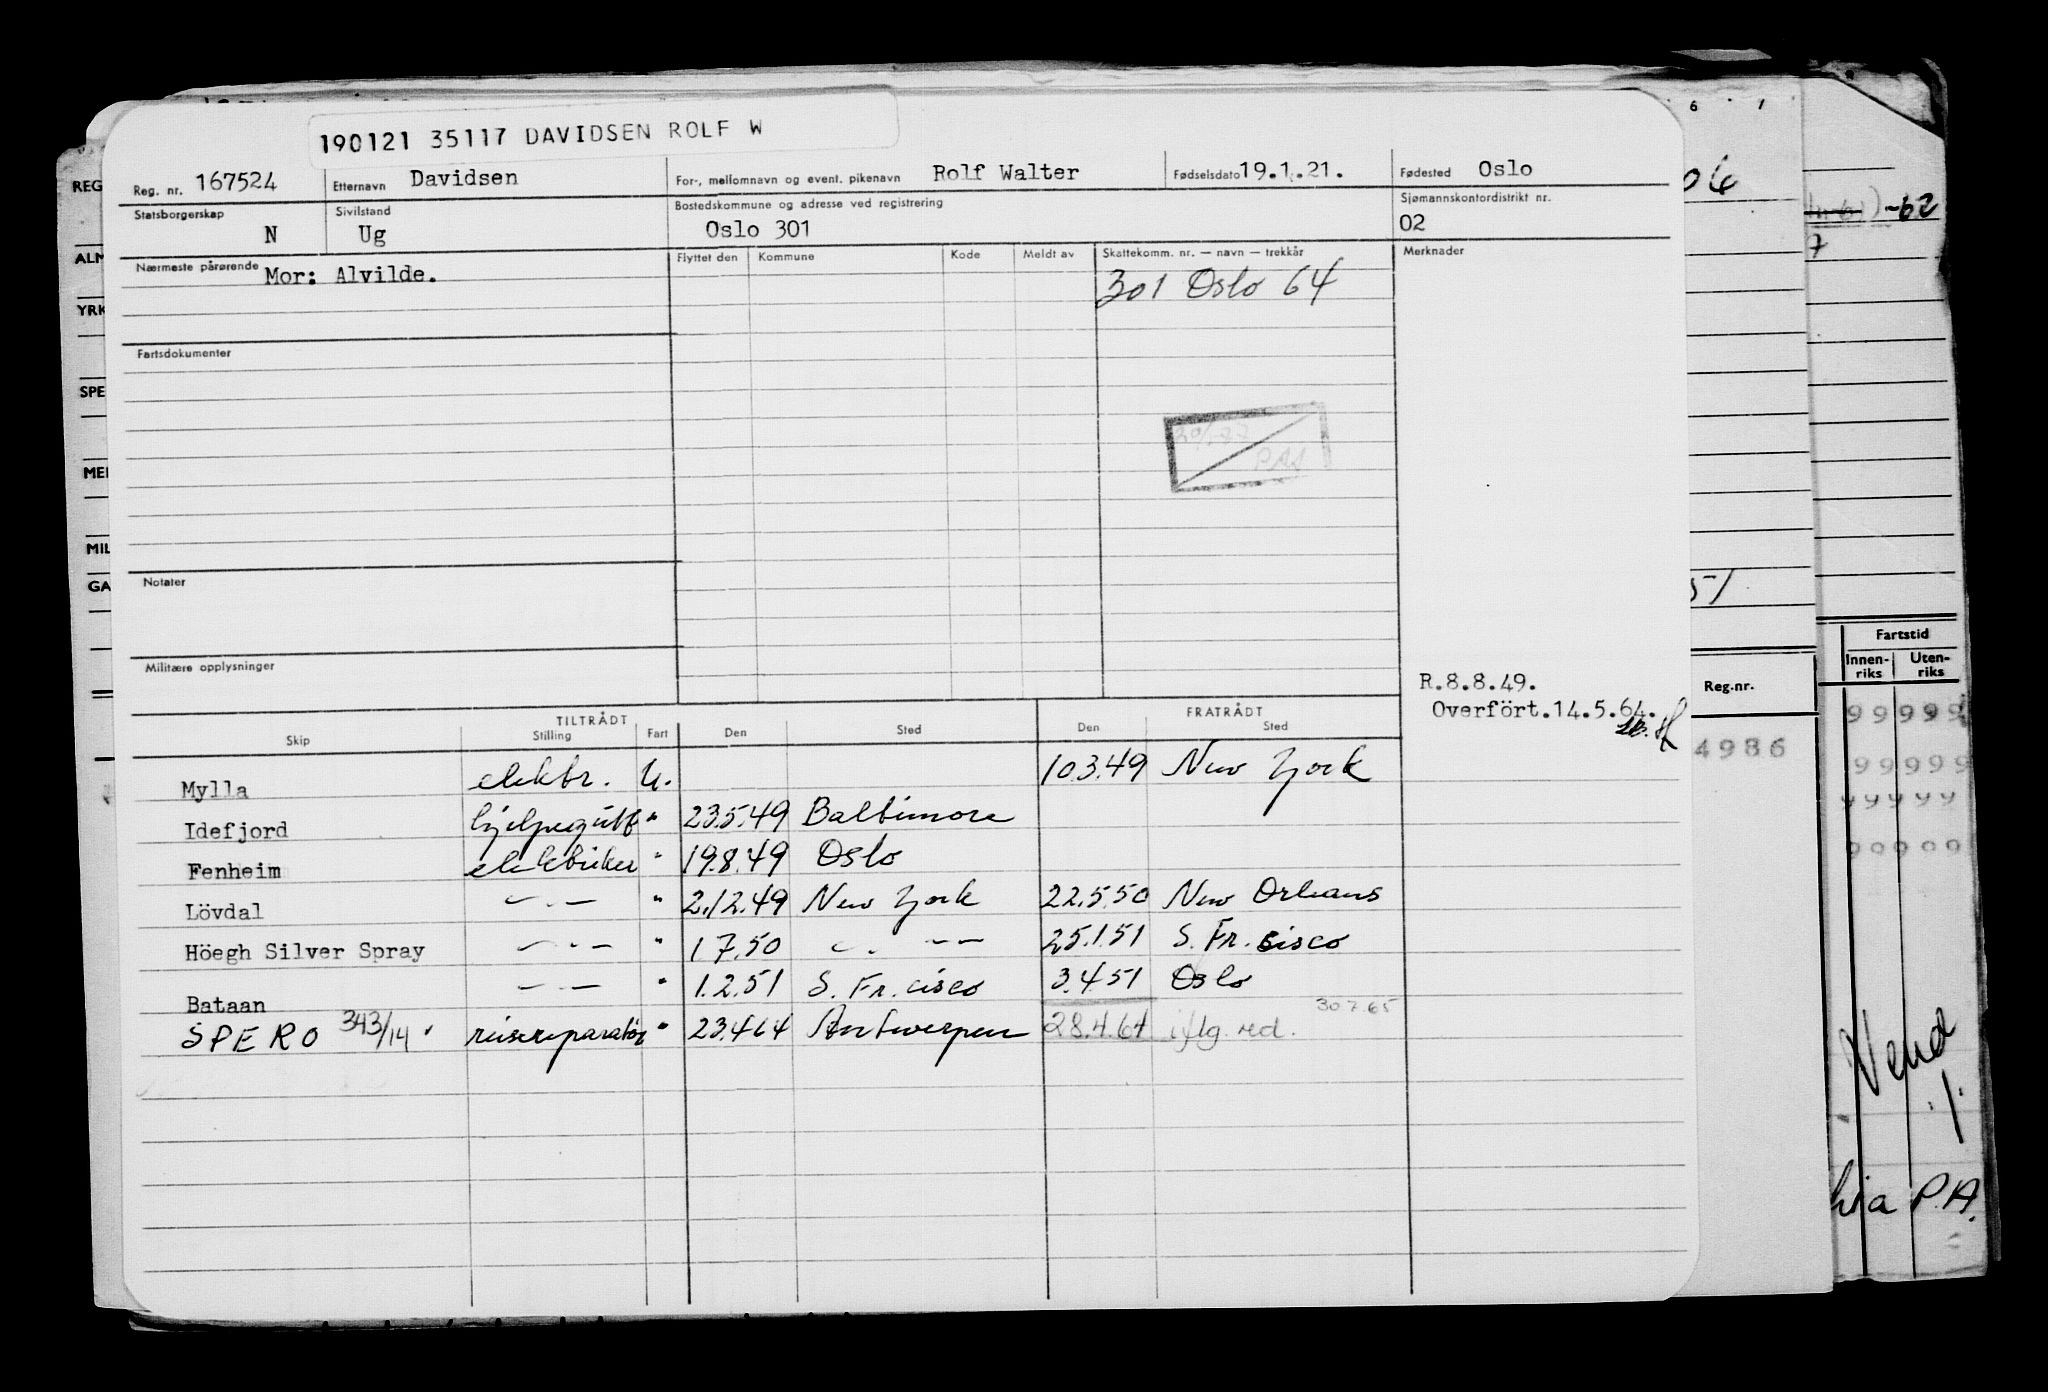 190121 35117 DAVIDSEN ROLF W
Reg. nr. 167524 Etternavn Davidsen For-, mellomnavn og event. pikenavn Rolf Walter Fødselsdato 19.1.21. Fødested Oslo
Statsborgerskap Sivilstand Bostedskommune og adresse ved registrering Sjømannskontordistrikt nr.
N Ug Oslo 301 02
Nærmeste pårørende Mor: Alvilde. Flyttet den Kommune Kode Meldt av Skattekomm. nr. — navn — trekkår Merknader
301 Oslo 64
Fartsdokumenter
PAS
Notater
Militære opplysninger
R.8.8.49.
Overfört.14.5.64.
TILTRÅDT FRATRÅDT
Skip Stilling Fart Den Sted Den Sted
Mylla elektr. U. 10.3.49 New York
Idefjord hjelpegutt " 23.5.49 Baltimore
Fenheim elektriker " 19.8.49 Oslo
Lövdal —"— " 2.12.49 New York 22.5.50 New Orleans
Höegh Silver Spray —"— " 1.7.50 —"— 25.1.51 S. Fr.cisco
Bataan —"— " 1.2.51 S. Fr.cisco 3.4.51 Oslo
SPERO 343/14 reisereparatör " 23.4.64 Antwerpen 28.4.64 iflg. red. 30.7.65
REG
ALM
YRK
SPE
MEI
MIL
GA
6 1
06
-62
7
51
Reg.nr.
4986
Fartstid
Innen-riks Uten-riks
99999
99999
99999
99999
Vend
!
hia P.A.